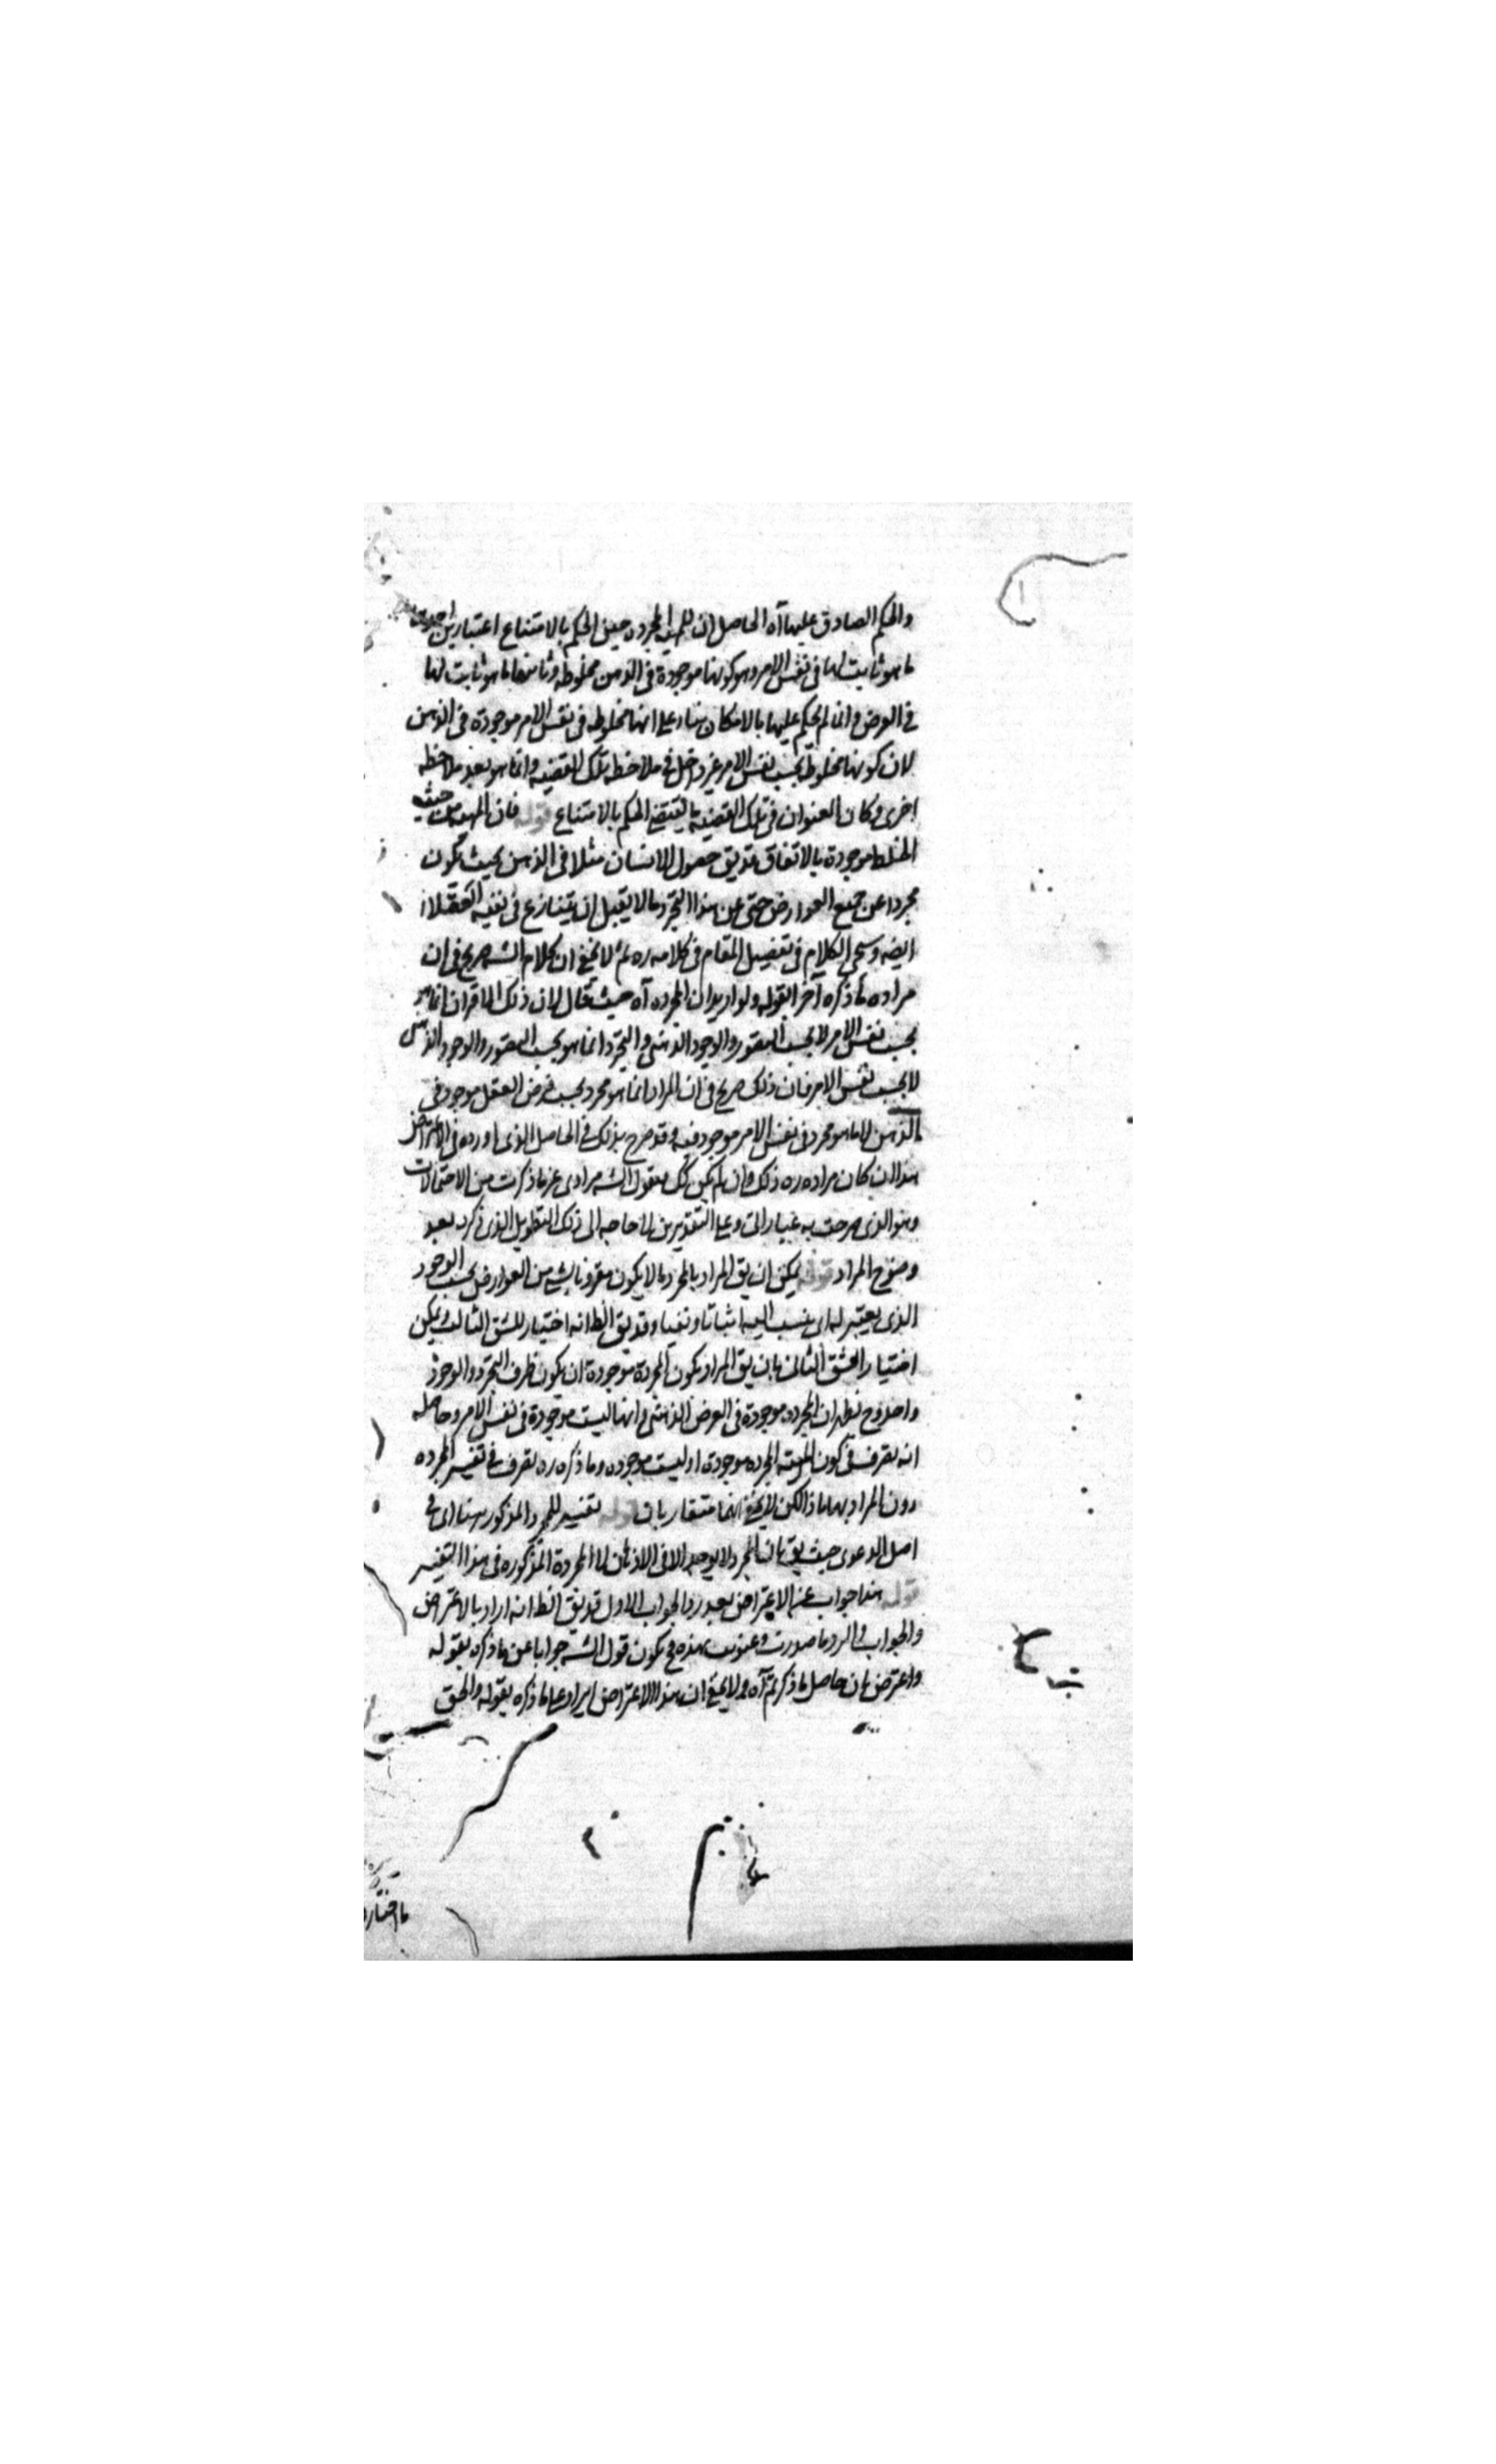 والحكم الصادق عليها آه الحاصل ان للمهية المجرده حين الحكم بالامتناع اعتبارين احدهما
ما هو ثابت لها فى نفس الامر وهو كونها موجودة فى الذهن مخلوطه وثانيهما ما هو ثابت لها
فى الفرض وانما لم يحكم عليها بالامكان بناء على انها مخلوطه فى نفس الامر موجودة فى الذهن
لان كونها مخلوطة بحسب نفس الامر غير داخل فى ملاحظه تلك القضيه وانما هو بعد ملاحظه
اخرى وكان العنوان فى تلك القضيه ما يقتضى الحكم بالامتناع قوله فان المهيه من حيث
الخلط موجودة بالاتفاق قد يق حصول الانسان مثلا فى الذهن بحيث يكون
مجردا عن جميع العوارض حتى عن هذا التجرد مما لا يقبل ان يتنازع فى نفيه العقلاء
ايضه وسيجى الكلام فى تفصيل المقام فى كلامه ره ثم لا يخفى ان كلام الشه صريح فى ان
مراده ما ذكره آخرا بقوله ولو اريد ان المجرده آه حيث قال لان ذلك الاقران انما هو
بحسب نفس الامر لا بحسب التصور والوجود الذهنى والتجرد انما هو بحسب التصور والوجود الذهنى
لا بحسب نفس الامر فان ذلك صريح فى ان المراد انما هو مجرد بحسب فرض العقل موجود فى
الذهن لا ما هو مجرد فى نفس الامر موجود فيه وقد صرح بذلك فى الحاصل الذى اورده فى الاعتراض
هذا ان كان مراده ره ذلك وان لم يكن كك فيقول الشه مرادى غير ما ذكرت من الاحتمالات
وهو الذى صرحت به عباراتى وعلى التقديرين لا حاجه الى ذلك التطويل الذى ذكره بعد
وضوح المراد قوله يمكن ان يق المراد بالمجرد ما لا يكون مقرونا بشئ من العوارض بحسب الوجود
الذى يعتبر له اى ينسب اليه اثباتا ونفيا وقد يق الظ انه اختيار للشق الثالث ويمكن
اختيار الشق الثانى بان يق المراد بكون المجردة موجودة ان يكون ظرف التجرد والوجود
واحد وح يظهر ان المجرده موجودة فى الفرض الذهنى وانها ليست موجودة فى نفس الامر وحاصله
انه تصرف فى كون المهية المجرده موجودة او ليست موجوده وما ذكره ره تصرف فى تفسير المجرده
دون المراد بهما هذا لكن لا يخفى انهما متقاربان قوله تفسير للمجرد المذكور هنا اى فى
اصل الدعوى حيث يق بان المجرد لا يوجد الا فى الاذهان لا المجردة المذكوره فى هذا التفسير
قوله هذا جواب عن الاعتراض بعد رد الجواب الاول قد يق الظ انه اراد بالاعتراض
والجواب والرد ما صورت وعنونت بهذه فح يكون قول الشه جوابا عن ما ذكره بقوله
واعترض بان حاصل ما ذكرتم آه ولا يخفى ان هذا الاعتراض ايراد على ما ذكره بقوله والحق